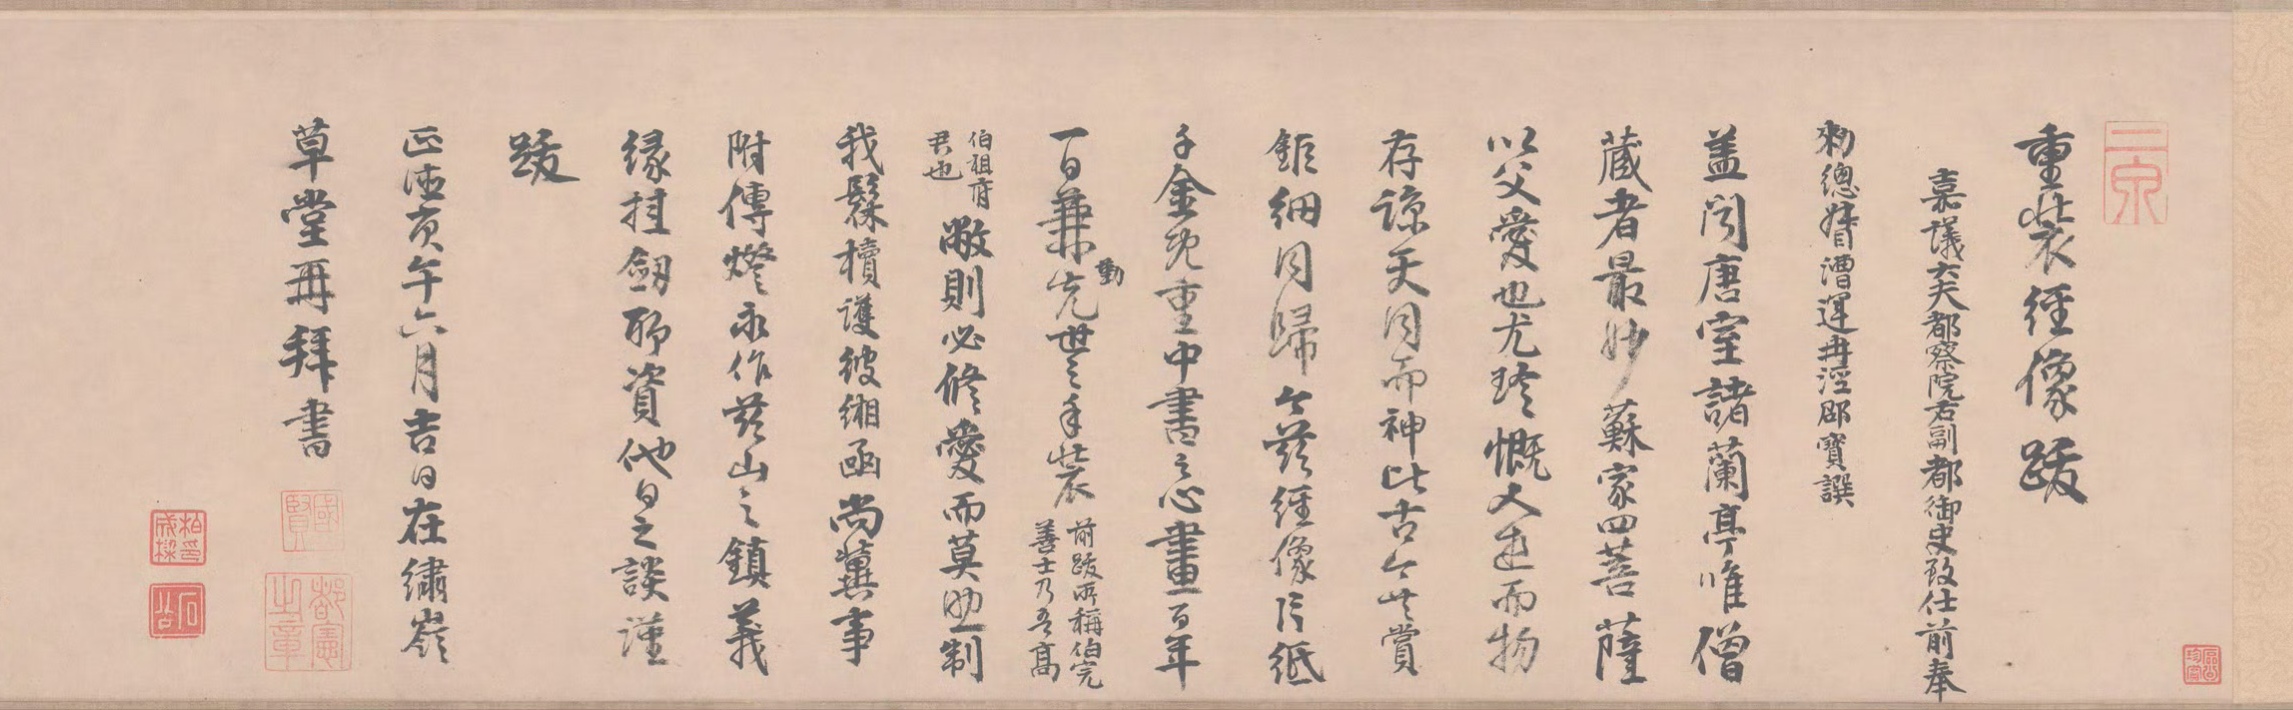 重裝經像跋
嘉議大夫都察院右副都御史致仕前奉
勑總督漕運無湮郡寶譔
蓋聞唐室諸蘭亭唯僧
藏者最妙蘇家四菩薩
以父愛也尤珍慨人逝而物
存諒天同而神比古今共賞
鉅細同歸今茲經像片紙
千金既重中書之心畫百年
一日兼勤先世之手裝
前跋所稱伯完
善士乃吾高
伯祖府
君也
敝則必修愛而莫助制
我髹櫝護彼緗函尚冀事
附傳燈永作茲山之鎮義
緣挂劒聊資他日之談謹
跋
正德庚午六月吉日在繡嶺
草堂再拜書
二泉
國賢
都憲之章